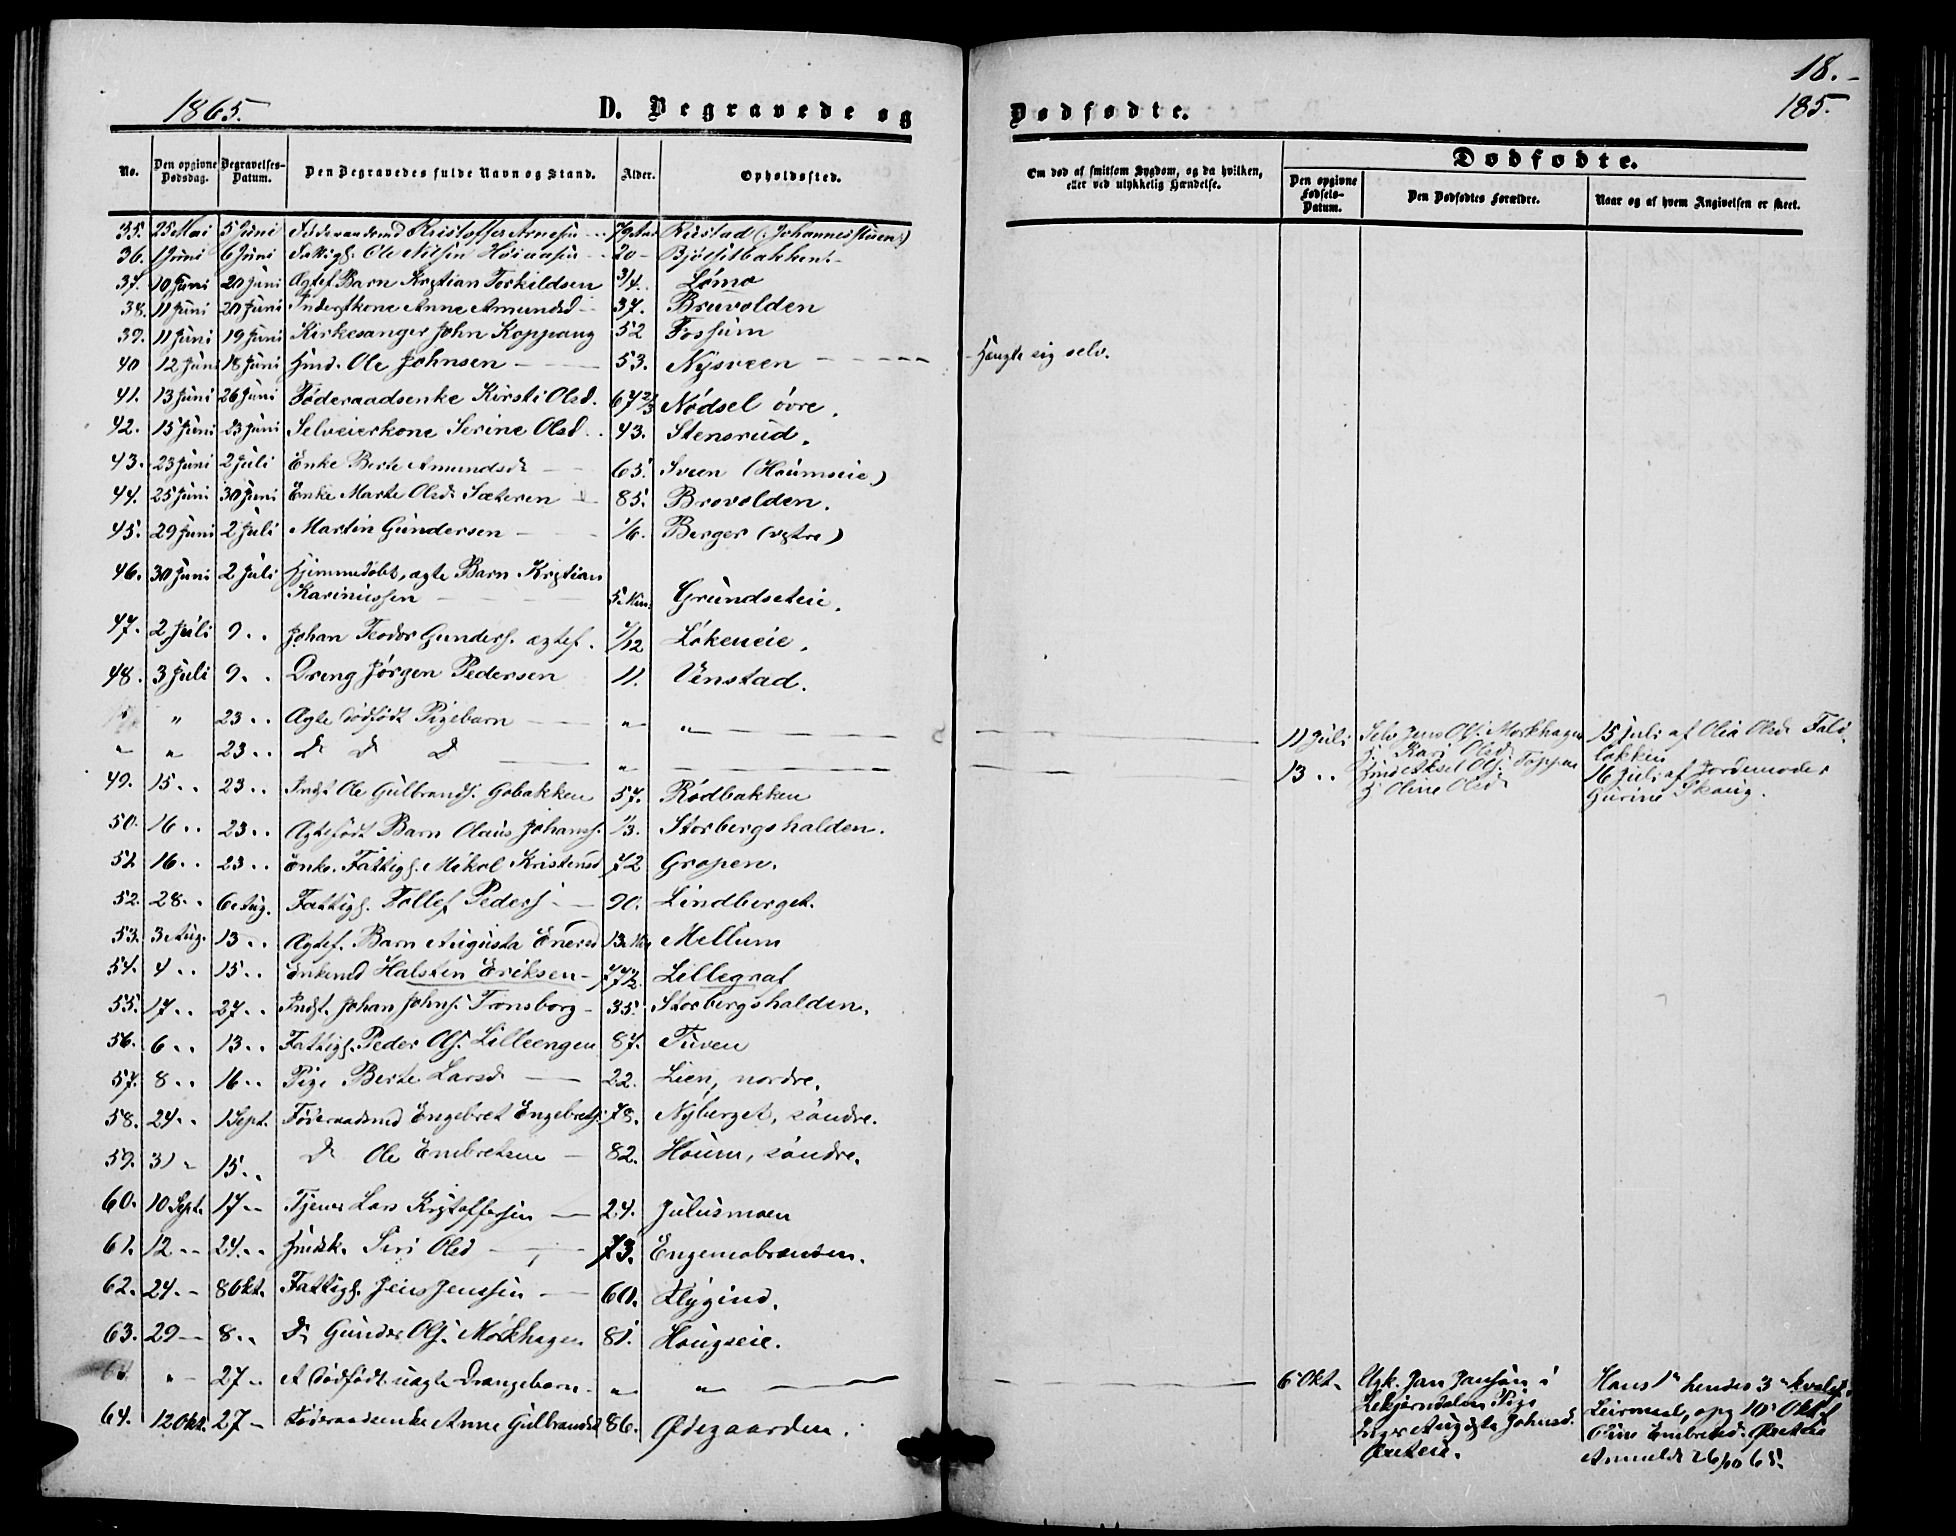 18.-
185.
1865.
D. Begravede og
Dødfødte.
No. Den opgivne Dødsdag. Begravelses-Datum. Den Begravedes fulde Navn og Stand. Alder. Opholdssted.
Om død af smitsom Sygdom, og da hvilken, eller ved ulykkelig Hændelse.
Dødfødte.
Den opgivne Fødsels-Datum. Den Dødfødtes Forældre. Naar og af hvem Angivelsen er skeet.
35. 25 Mai 5 Juni Føderaadsmd Kristoffer Arnesen 79 Aar Rustad (Johannesstuen)
36. 1 Juni 6 Juni Fattigl. Ole Nilsen 20 - Bjølsetbakken
37. 10 Juni 20 Juni Ægtef. Barn Kristian Torkildsen 3/4. Lömo
38. 11 Juni 20 Juni Inderstkone Anne Amundsd 37. Bruvolden
39. 11 Juni 19 Juni Kirkesanger John Koppang 52 Fossum
40 12 Juni 18 Juni Hmd. Ole Johnsen 53. Nysveen - Hængte sig selv.
41. 13 Juni 26 Juni Föderaadsenke Kirsti Olsd. 67 2/3 Nödsel övre.
42. 15 Juni 23 Juni Selveierkone Serine Olsd. 43. Stensrud.
43. 23 Juni 2 Juli Enke Berte Amundsdr 65. Sveen (Houmseie)
44. 25 Juni 30 Juni Enke Marte Olsdr Sæteren 85. Brovolden.
45. 29 Juni 2 Juli Martin Gundersen 1/6. Berger (vestre)
46. 30 Juni 2 Juli Hjemmedöbt, ægte Barn Kristian
Karinussen 5. Grundseteie.
47. 2 Juli 9 . . Johan Teodor Gunders. ægtef. /12 Lökeneie.
48. 3 Juli 9 . . Dreng Jörgen Pedersen 11. Venstad.
" 23 . . Ægte dödfödt Pigebarn " "
11 Juli Selv. Jens Ols. Mørkhagen 15 Juli af Olea Olsdr
H. Kari Olsdr løkken
" " 23 . . Do Do Do "
13 . . Aksel Ols. Toppen 16 Juli af Jordemoder
H. Oline Olsdr Gurine Skaug.
49. 15 . . 23 . . Indst Ole Gulbrands. Gobakken 57. Rödbakken
50. 16 . . 23 . . Ægtefödt Barn Olaus Johans. 1/3. Storbergshalden.
51 16 . . 23 . . Enke. Fattigl. Mikol Kristensd 72 Gropen.
52. 28 . . 6 Aug. Fattigl. Tollef Peders 90. Lindberget.
53. 3 Aug. 13 . . Ægtef. Barn Augusta Enersd 13 Mellum
54. 4 . . 15 . . Enkemd Halsten Eriksen 77 1/2 Lillegraf
55. 17 . . 27 . . Indst. Johan Johns. Tronsborg 35. Storbergshalden.
56. 6 . . 13 . . Fattigl. Peder Ols. Lilleengen 87. Tuven
57. 8 . . 16 . . Pige Berte Larsdr 22. Lien, nordre.
58. 24 . . 1 Sept. Föderaadsmd Engebret Engebrets. 78. Nyberget, söndre.
59. 31 - 15 . . Do Ole Embretsen 82. Houm, söndre.
60. 10 Sept. 17 - Tjener Lars Kristoffersen 24. Julusmoen
61. 12 . . 24 . . Siri Olsd 73. Engemobraaten.
62. 24 - 8 Okt. Fattigl. Jens Jenssen 60. Flygind.
63. 29 - 8 . . Do Gunder Ols. Mörkhagen 81. Hougseie.
" 27 - Et dödfödt uægte Drengebarn " "
6 Okt. Ugk. Jan Jansen i Hans 1te hendes 3die
Pige opg 10. Okt. af
Augusta Johnsd. Embretsd.
Anmeldt 26/10 65.
64. 12 Okt. 27 - Föderaadsenke Anne Gulbrandsd 86. Ødegaarden.